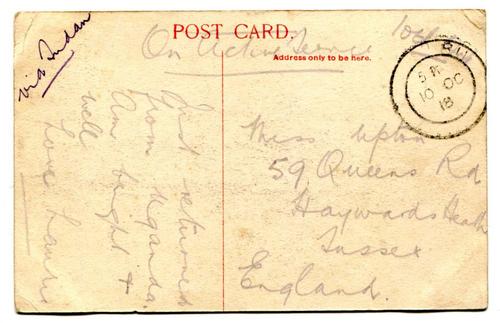 via Sudan
POST CARD.
On Active Service
Address only to be here.
5 P
10 OC
18
Just returned
from Uganda.
Am bright &
well
Love
Miss Upton
59 Queens Rd
Haywards Heath
Sussex
England.